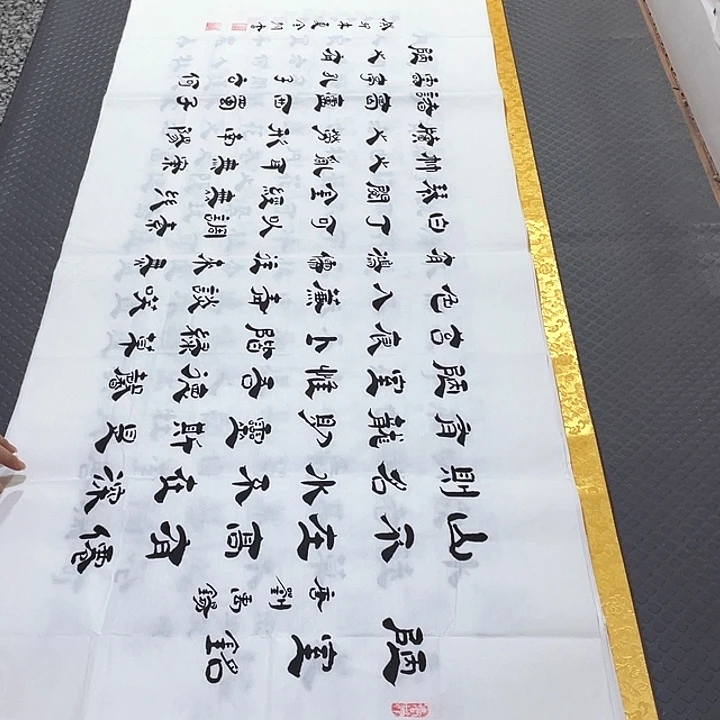 陋室銘
唐劉禹錫
山不在高有僊
則名水不在深
有龍則靈斯是
陋室惟吾德馨
苔痕上階綠草
色入簾青談笑
有鴻儒往來無
白丁可以調素
琴閱金經無絲
竹之亂耳無案
牘之勞形南陽
諸葛廬西蜀子
雲亭孔子云何
陋之有
癸卯年夏